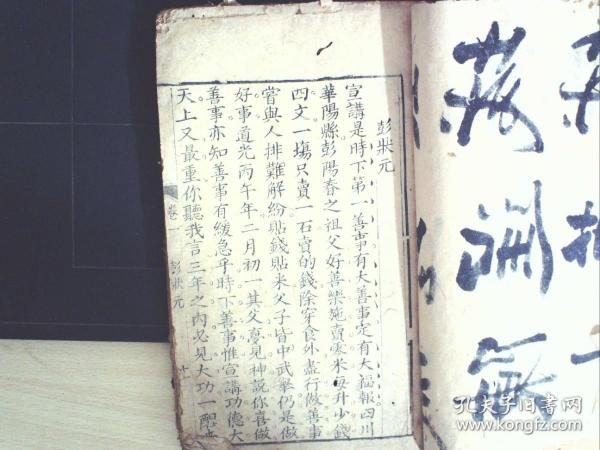 彭狀元
宣講是時下第一善事有大善事定有大福報四川
華陽縣彭陽春之祖父好善樂施賣零米每升少錢
四文一塲只賣一石賣的錢除穿食外盡行做善事
嘗與人排難解紛貼錢貼米父子皆中武舉仍是做
好事道光丙午年二月初一其父夢見神說你喜做
善事亦知善事有緩急乎時下善事惟宣講功德大
天上又最重你聽我言三年之內必見大功一
卷一 彭狀元
孔夫子旧书网